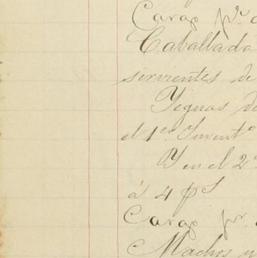 Cargo pr.
Caballada
sirvientes de
Yeguas de
el 1er Invent.o
Y en el 2
á 4 ps.
Cargo pr.
Machos